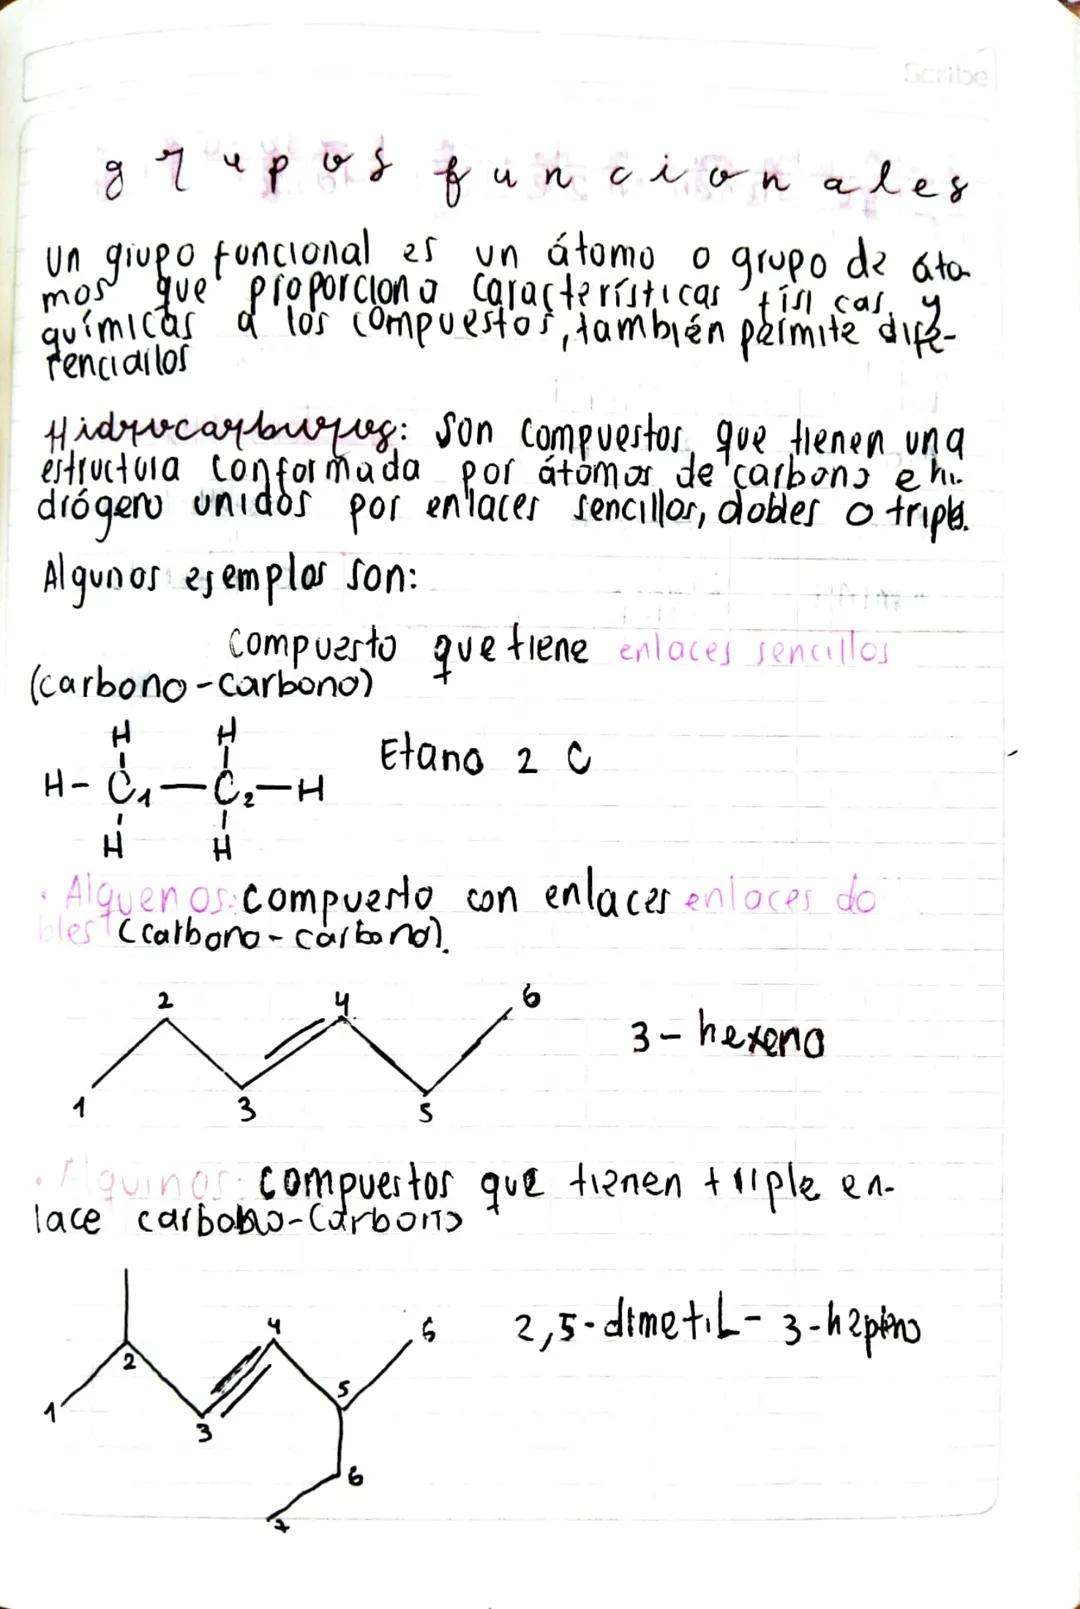 Scribe
grupos funcionales
Un grupo funcional es un átomo o grupo de áto-
mos que proporciona características físicas y
químicas a los compuestos, también permite dife-
renciarlos
Hidrocarburos: Son compuestos que tienen una
estructura conformada por átomos de carbono e hi-
drógeno unidos por enlaces sencillos, dobles o triples.
Algunos ejemplos son:
Compuesto que tiene enlaces sencillos
(carbono-carbono)
H H
H-C1-C2-H
H H
Etano 2 C
• Alquenos: compuesto con enlaces enlaces do
bles (carbono-carbono).
2 4 6
1 3 5
3-hexeno
• Alquinos: compuestos que tienen triple en-
lace carbobno-Carbono
1 2 3 4 5 6
6
7
2,5-dimetiL-3-hepino